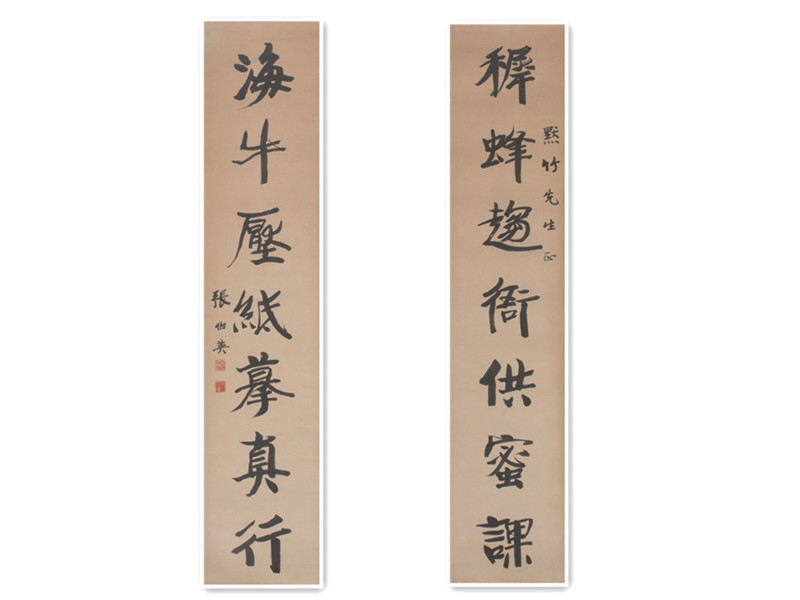 穉蜂趨衙供蜜課
黙竹先生正
海牛壓紙摹真行
張伯英